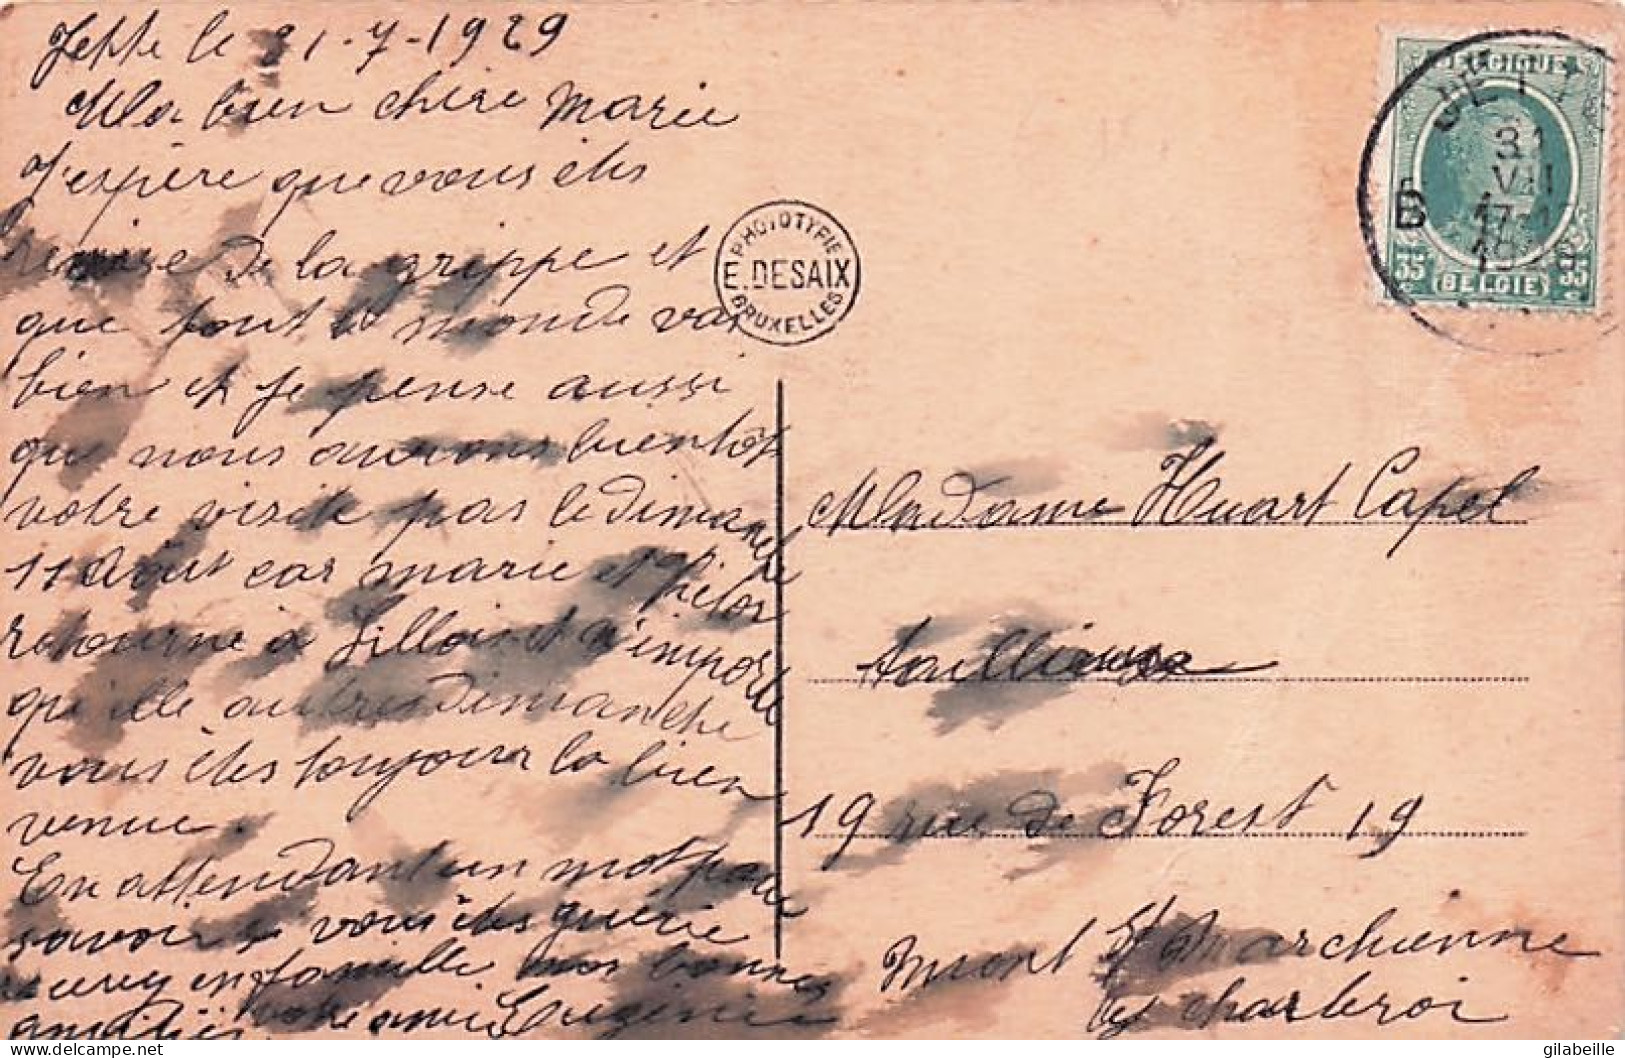 Jette le 31-7-1929
Ma bien chère Marie
J'espère que vous êtes
remise de la grippe et
que tout le monde vas
bien et je pense aussi
que nous aurons bientôt
votre visite pas le dimanche
11 Août car marie et
retourne à et n'importe
qu'elle autres dimanche
vous êtes toujours la bien
venue.
En attendant un mot pour
savoir si vous êtes guérie
recevez en famille nos bonnes
amitiés votre amie Eugénie
PHOTOTYPIE
E. DESAIX
BRUXELLES
BELGIQUE
35 c (BELGIE) 35 c
JETTE
31
VII
B
Madame Huart Capel
tailleuse
19 rue de Forest 19
Mont S/ Marchienne
Charleroi
gilabeille